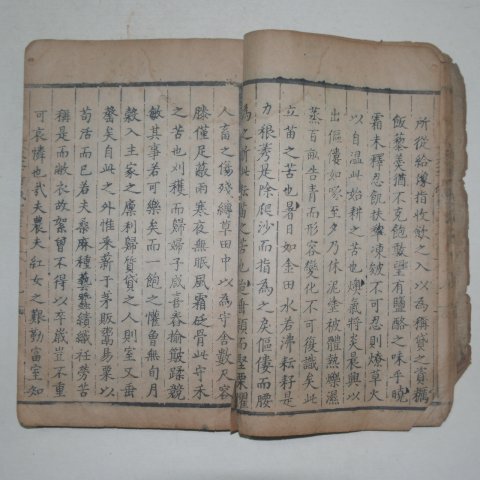 所從給像指收斂之入以為稱貸之資糲
飯藜羹猶不克飽敢望有鹽酪之味乎曉
霜未釋忍飢扶犁凍皴不可忍則燎草火
以自溫此始耕之苦也燠氣將炎晨興以
出傴僂如啄至夕乃休泥塗被體熱爍濕
蒸百畝告青而形容變化不可復識矣此
立苗之苦也暑日如金田水若沸耘耔是
力稂莠是除爬沙而指為之戾傴僂而腰
為之折此耘苗之苦也迨垂穎而堅栗懼
人畜之傷殘縛草田中以為守舍數尺容
膝僅足蔽雨寒夜無眠風霜砭骨此守禾
之苦也刈穫而歸婦子咸喜舂揄簸蹂競
敏其事若可樂矣而一飽之懽曾無旬月
穀入主家之廩利歸質貸之人則室又垂
罄矣自此之外惟采薪于茅販鬻易粟以
苟活而已若夫桑麻種藝蠶績織紝勞苦
稱是而敝衣故絮曾不得以卒歲豈不重
可哀憐也哉夫農夫紅女之艱勤富室知